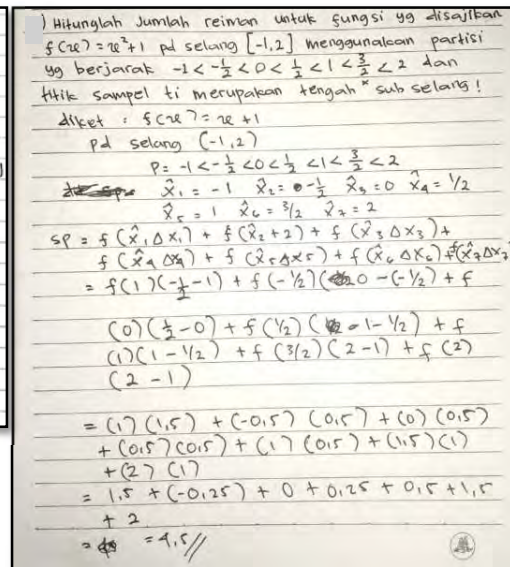 ) Hitunglah Jumlah reiman untuk fungsi yg disajikan
f(x) = x²+1 pd selang [-1,2] menggunakan partisi
yg berjarak -1 < -½ < 0 < ½ < 1 < 3/2 < 2 dan
titik sampel ti merupakan tengah" sub selang !
diket : f(x) = x + 1
pd selang (-1,2)
P = -1 < -½ < 0 < ½ < 1 < 3/2 < 2
x̂₁ = -1 x̂₂ = -½ x̂₃ = 0 x̂₄ = 1/2
x̂₅ = 1 x̂₆ = 3/2 x̂₇ = 2
SP = f(x̂₁ Δx₁) + f(x̂₂+2) + f(x̂₃ Δx₃) +
f(x̂₄ Δx₄) + f(x̂₅ Δx₅) + f(x̂₆ Δx₆) + f(x̂₇ Δx₇
= f(1)(-½-1) + f(-½)(0-(-½) + f
(0)(½-0) + f(½)(1-½) + f
(1)(1-½) + f(3/2)(2-1) + f(2)
(2-1)
= (1)(1,5) + (-0,5)(0,5) + (0)(0,5)
+ (0,5)(0,5) + (1)(0,5) + (1,5)(1)
+ (2)(1)
= 1,5 + (-0,25) + 0 + 0,25 + 0,5 + 1,5
+ 2
= = 4,5//